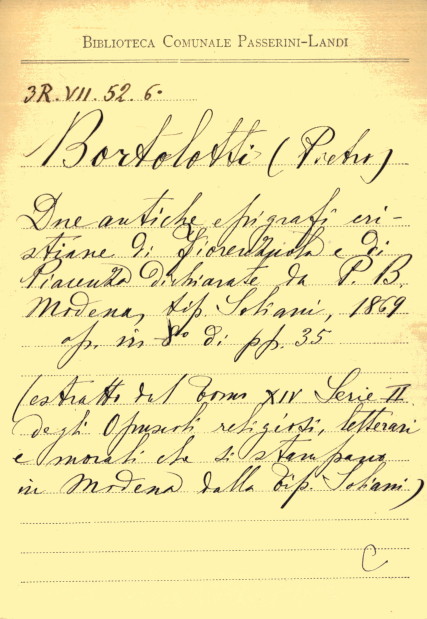 BIBLIOTECA COMUNALE PASSERINI-LANDI
3R.VII.52.6.
Bortolotti (Pietro)
Due antiche epigrafi cri-
stiane di Fiorenzuola e di
Piacenza dichiarate da P. B.
Modena, tip. Soliani, 1869
op. in 8º di pp. 35
(estratto dal Tomo XIV Serie II
degli Opuscoli religiosi, letterari
e morali che si stampano
in Modena dalla tip. Soliani)
C